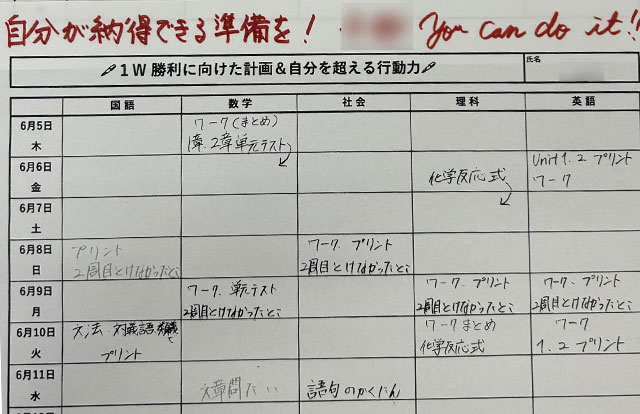 自分が納得できる準備を! You can do it!!
1W 勝利に向けた計画&自分を超える行動力
氏名
国語 数学 社会 理科 英語
6月5日
木
ワーク(まとめ)
1章、2章単元テスト
6月6日
金
化学反応式
Unit 1.2 プリント
ワーク
6月7日
土
6月8日
日
プリント
2周目とけなかったとこ
ワーク、プリント
2周目とけなかったとこ
6月9日
月
ワーク、単元テスト
2周目とけなかったとこ
ワーク、プリント
2周目とけなかったとこ
ワーク、プリント
2周目とけなかったとこ
6月10日
火
文法、対義語
プリント
ワークまとめ
化学反応式
ワーク
1.2 プリント
6月11日
水
文章問だい
語句のかくにん